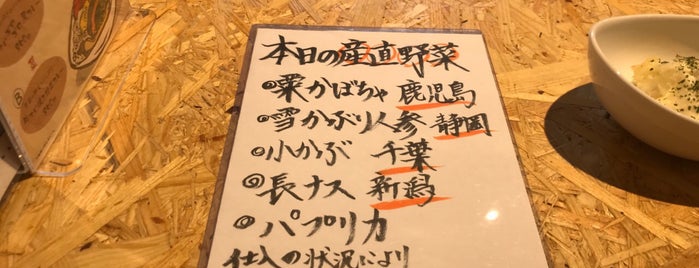 本日の産直野菜
◎栗かぼちゃ 鹿児島
◎雪かぶり人参 静岡
◎小かぶ 千葉
◎長ナス 新潟
◎パプリカ
仕入の状況により